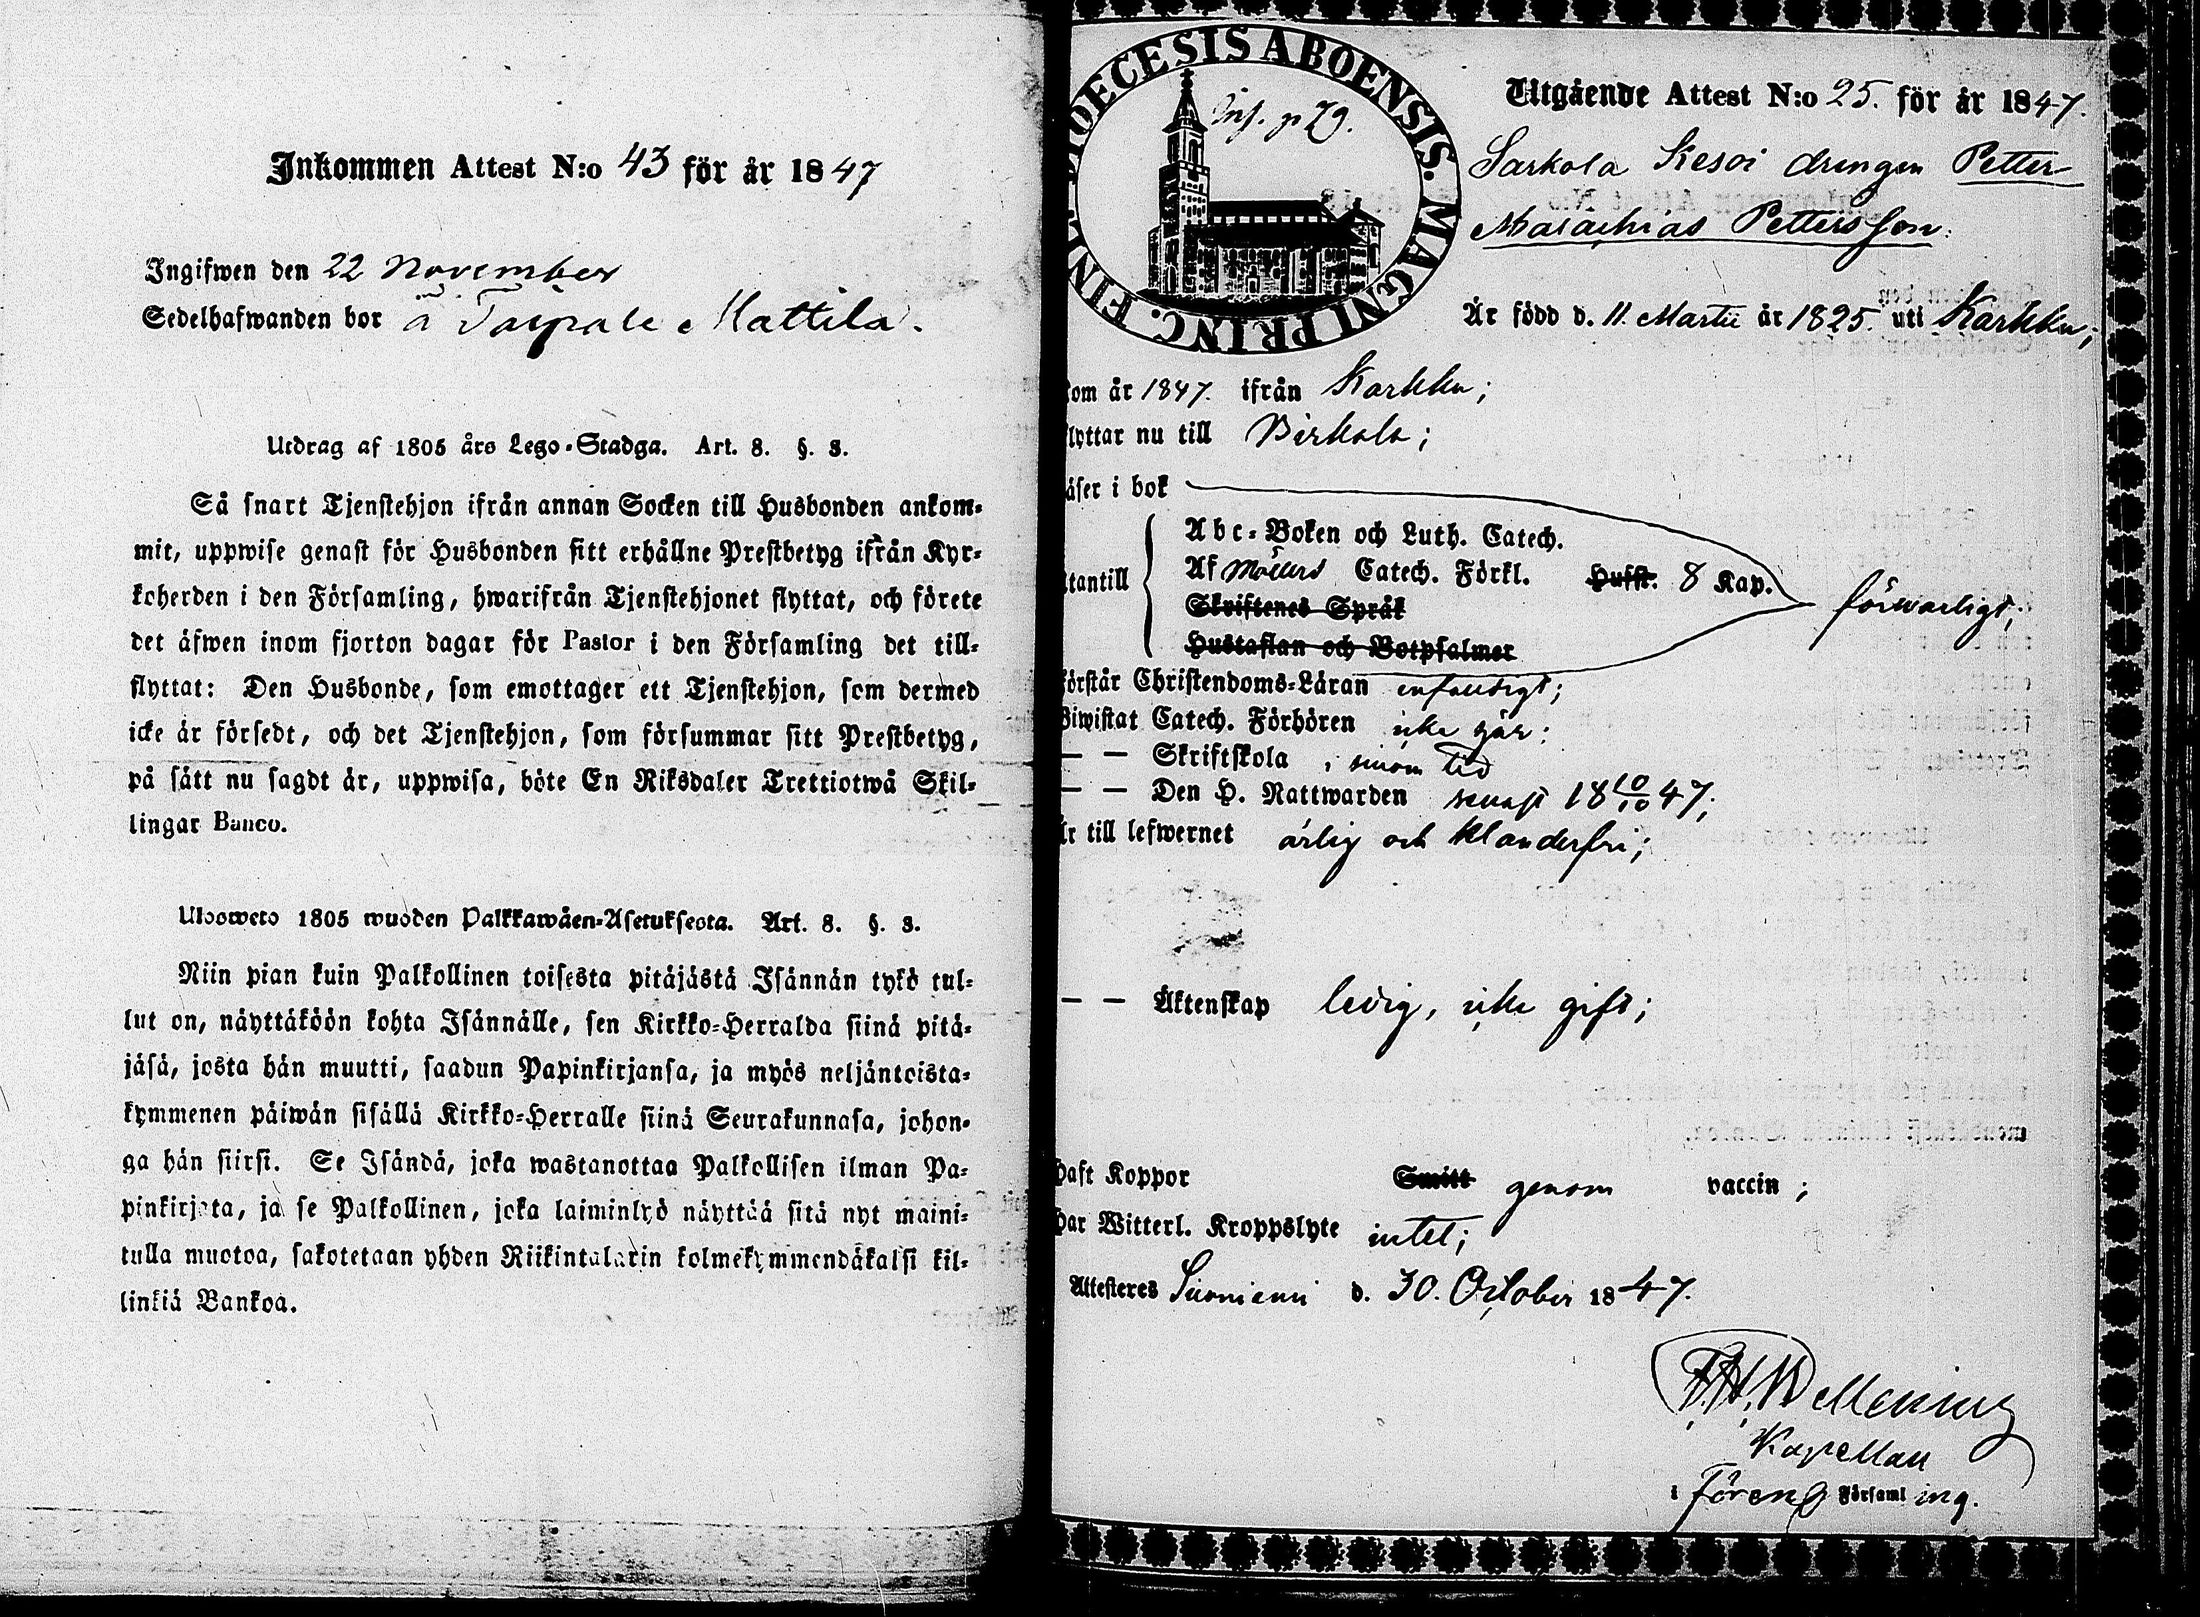 Inkommen Attest N:o 43 för år 1847
Ingifwen den 22 November
Sedelhafwanden bor å Taipale Mattila.
Utdrag af 1805 års Lego-Stadga. Art. 8. §. 3.
Så snart Tjenstehjon ifrån annan Socken till Husbonden ankom-
mit, uppwise genast för Husbonden sitt erhållne Prestbetyg ifrån Kyr-
koherden i den Församling, hwarifrån Tjenstehjonet flyttat, och förete
det äfwen inom fjorton dagar för Pastor i den Församling det till-
flyttat: Den Husbonde, som emottager ett Tjenstehjon, som dermed
icke är försedt, och det Tjenstehjon, som försummar sitt Prestbetyg,
på sätt nu sagdt är, uppwisa, böte En Riksdaler Trettiotwå Skil-
lingar Banco.
Ulosweto 1805 wuoden Palkkawäen-Asetuksesta. Art. 8. §. 3.
Niin pian kuin Palkollinen toisesta pitäjästä Isännän tykö tul-
lut on, näyttäköön kohta Isännälle, sen Kirkko-Herralda siinä pitä-
jäsä, josta hän muutti, saadun Papinkirjansa, ja myös neljäntoista-
kymmenen päiwän sisällä Kirkko-Herralle siinä Seurakunnasa, johon-
ga hän siirsi. Se Isändä, joka wastanottaa Palkollisen ilman Pa-
pinkirjata, ja se Palkollinen, joka laiminlyö näyttää sitä nyt maini-
tulla muotoa, sakotetaan yhden Riikintalarin kolmekymmendäkaksi kil-
linkiä Bankoa.
DIOECESIS ABOENSIS. MAGNI PRINC. FINL.
Inf. p 79.
Utgående Attest N:o 25. för år 1847.
Sarkola Kesoi drengen Petter
Malachias Pettersson.
Är född d. 11. Martii år 1825. uti Karkku;
kom år 1847. ifrån Karkku;
flyttar nu till Birkala;
läser i bok
utantill
Abc-Boken och Luth. Catech.
Af Möllers Catech. Förkl. Husst. 8 Kap.
Skriftenes Språk
Hustaflan och Botpsalmer
förwarligt;
förstår Christendoms-Läran enfaldigt;
Biwistat Catech. Förhören icke här;
— — Skriftskola i sinom tid
— — Den H. Nattwarden senast 18 10/10 47;
Är till lefwernet ärlig och klanderfri;
— — Äktenskap ledig, icke gift;
Haft Koppor Smitt genom vaccin;
Har Witterl. Kroppslyte intet;
Attesteres Suoniemi d. 30. October 1847.
Kapellan
i Föreng Församling.